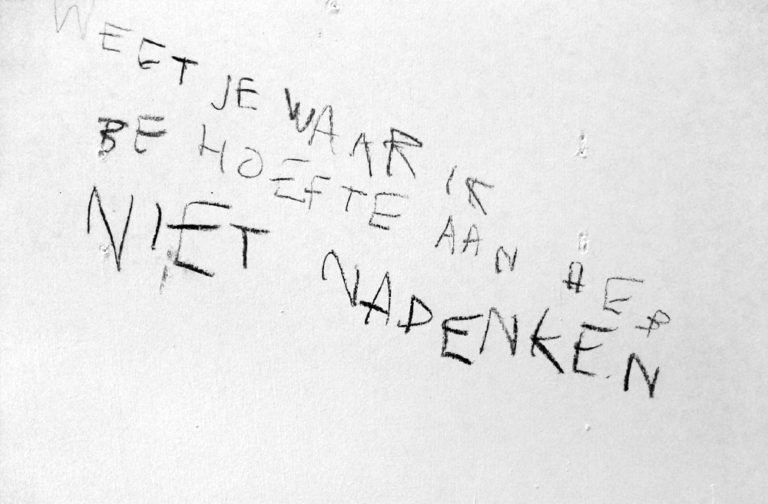 WEET JE WAAR IK
BEHOEFTE AAN HEB
NIET NADENKEN